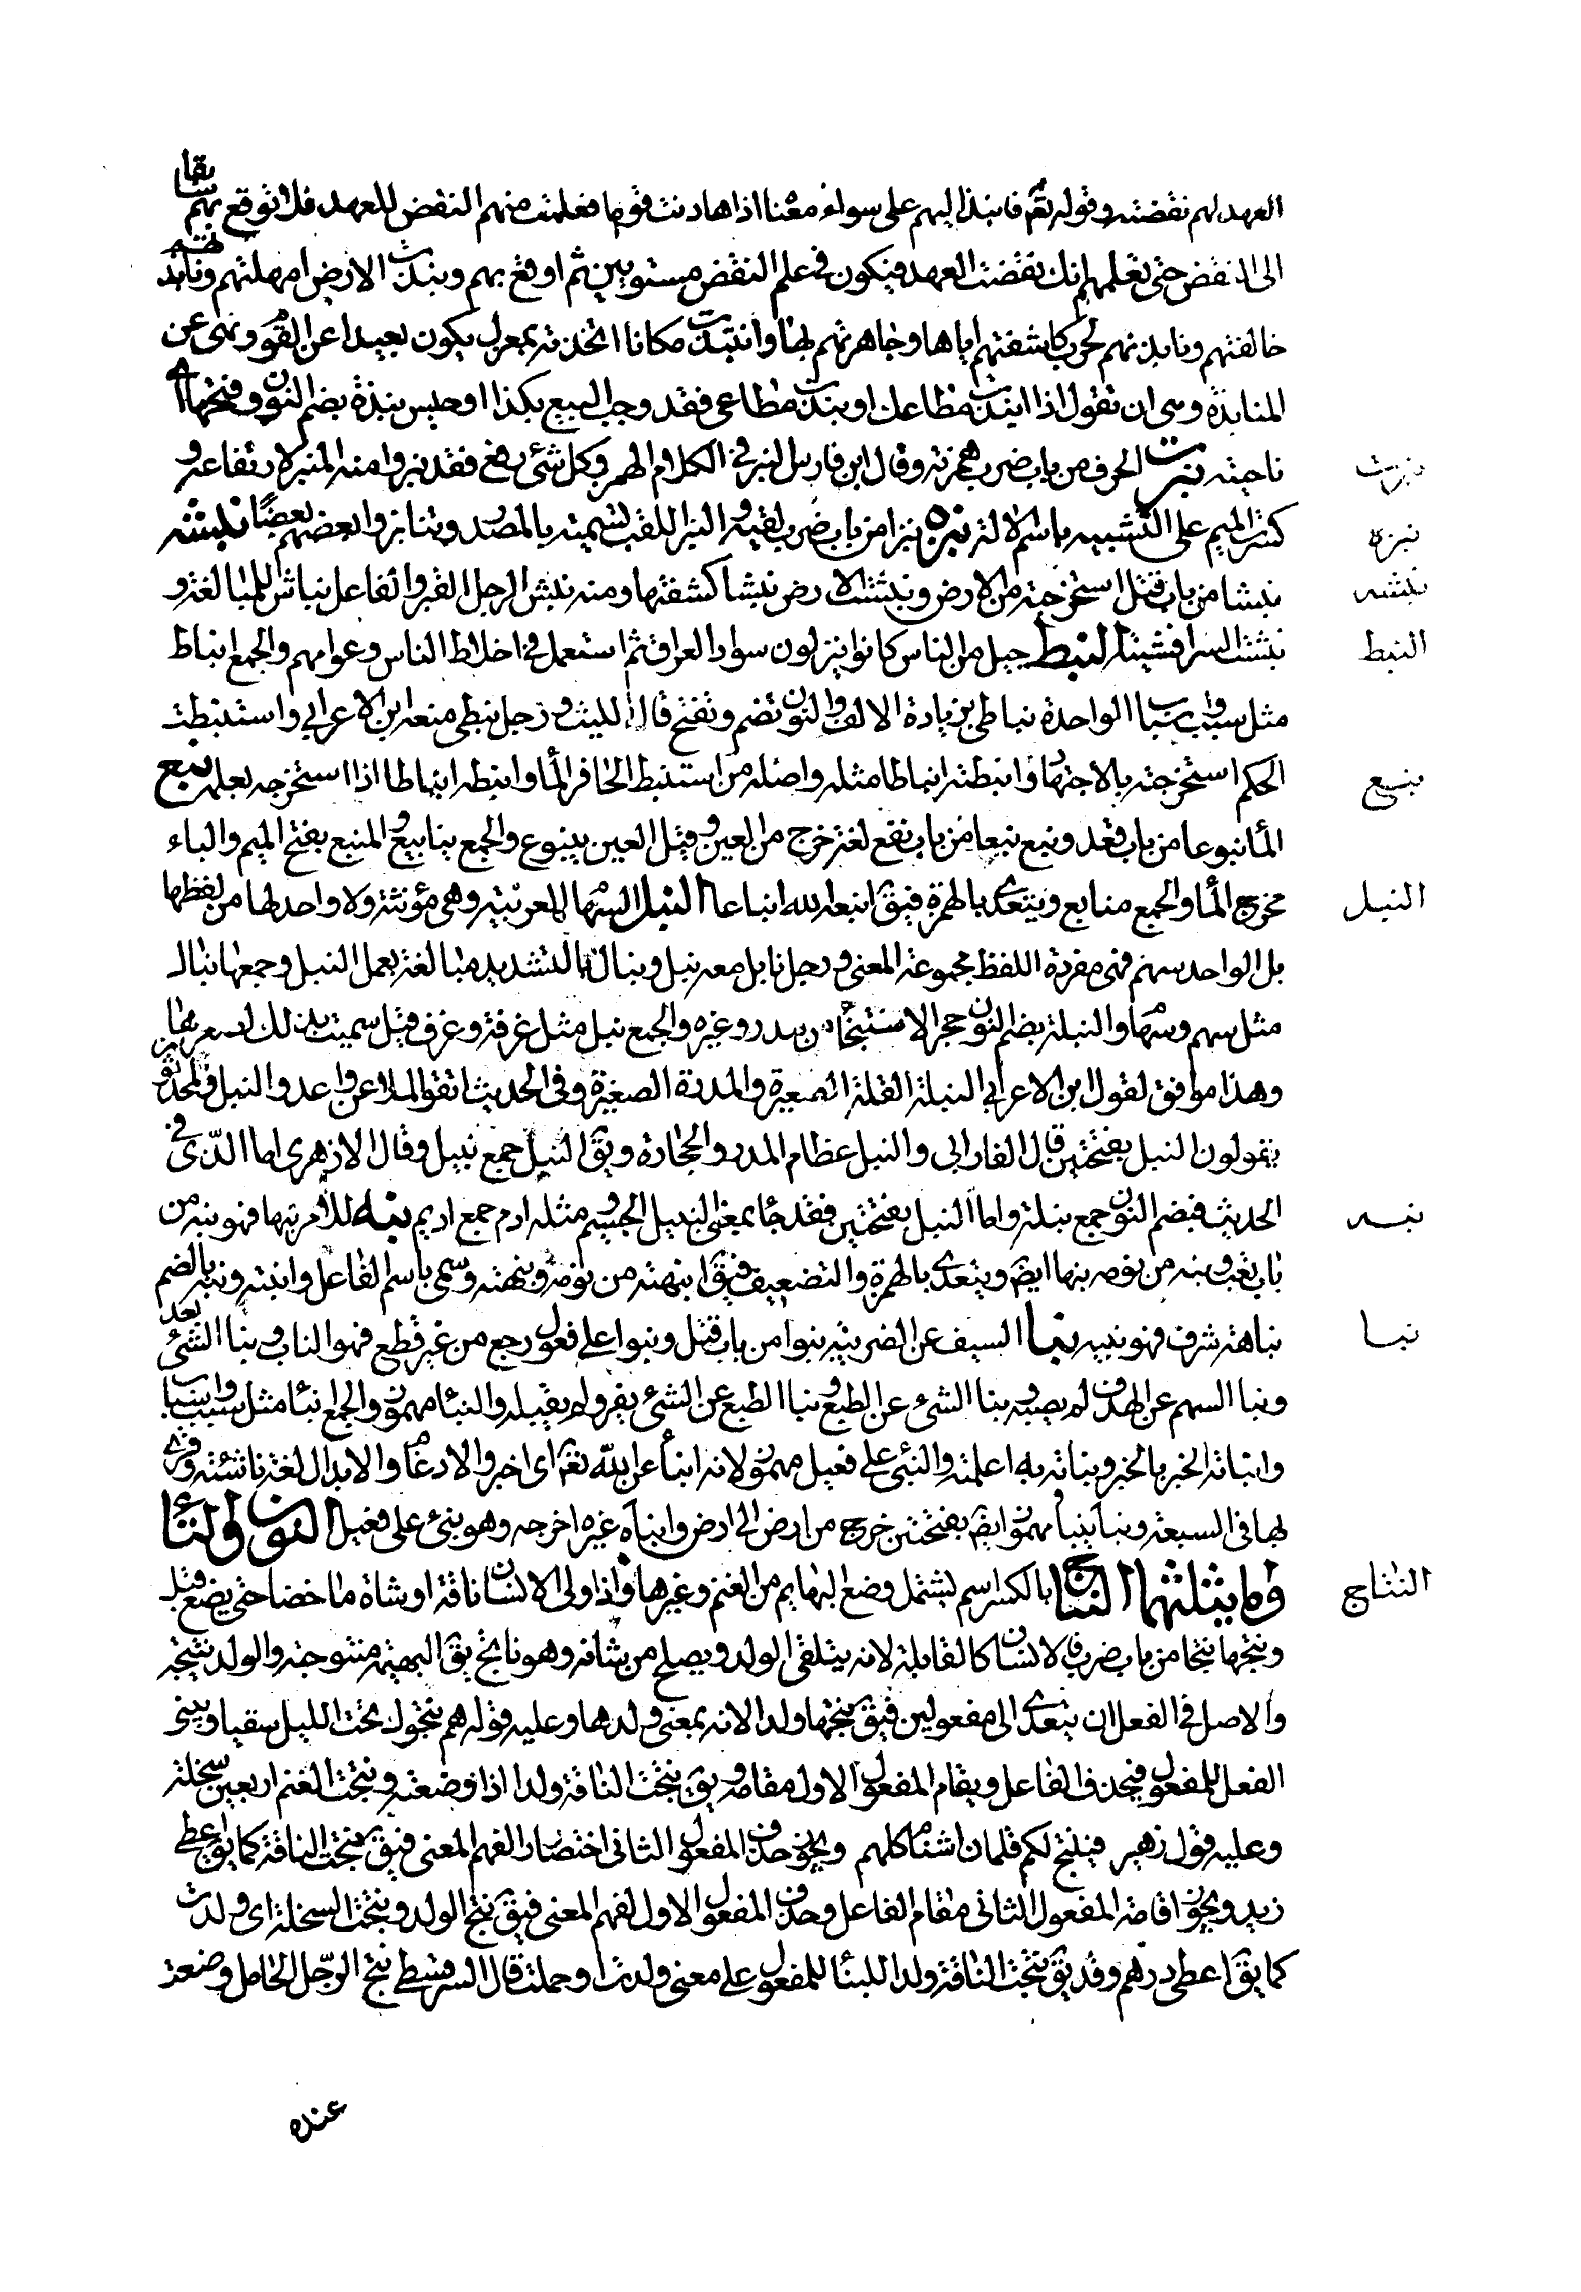 العهد لهم نقضته وقوله تعم فانبذ اليهم على سواء معناه اذا هادنت قوما فعلمت منهم النقض للعهد فلا توقع بهم سابقا
الى النقض حتى تعلمهم انك نقضت العهد فيكون في علم النقض مستويين ثم اوقع بهم ونبذت الامر اهملته ونابذتهم
خالفتهم ونابذتهم الحرب كاشفتهم اياها وجاهرتهم بها وانتبذت مكانا اتخذته بمعزل يكون بعيدا عن القوم ونهى عن
المنابذة وهى ان تقول اذا نبذت متاعك او نبذت متاعى فقد وجب البيع بكذا او جلس نبذة بضم النون وفتحها اى
نبرت
ناحيته نبرت الحرف من باب ضرب همزته وقال ابن فارس النبر في الكلام الهمز وكل شئ رفع فقد نبر ومنه المنبر لارتفاعه و
نبزه
كسرت الميم على التشبيه باسم الالة نبزه نبزا من باب ضرب لقبه والنبز اللقب تسمية بالمصدر وتنابزوا بعضهم بعضا نبشته
نبشته
نبشا من باب قتل استخرجته من الارض ونبشت الارض نبشا كشفتها ومنه نبش الرجل القبر والفاعل نباش للمبالغة و
النبط
نبشت السر افشيته النبط جيل من الناس كانوا ينزلون سواد العراق ثم استعمل في اخلاط الناس وعوامهم والجمع انباط
مثل سبب واسباب الواحدة نباطى بزيادة الالف والنون تضم وتفتح قال الليث ورجل نبطى منعه ابن الاعرابي واستنبطت
الحكم استخرجته بالاجتهاد وانبطته انباطا مثله واصله من استنبط الحافر الماء وانبطه انباطا اذا استخرجه بعمله نبع
نبع
الماء نبوعا من باب قعد ونبع نبعا من باب نفع لغة خرج من العين وقيل العين ينبوع والجمع ينابيع والمنبع بفتح الميم والباء
النبل
مخرج الماء والجمع منابع ويتعدى بالهمزة فيق انبعه الله انباعا النبل السهام العربية وهى مؤنثة ولا واحد لها من لفظها
بل الواحد سهم فهى مفردة اللفظ مجموعة المعنى ورجل نابل معه نبل ونبال بالتشديد مبالغة يعمل النبل وجمعها نبال
مثل سهم وسهام والنبلة بضم النون حجر الاستنجاء من مدر وغيره والجمع نبل مثل غرفة وغرف قيل سميت بذلك لصغرها
وهذا موافق لقول ابن الاعرابي النبلة اللقمة الصغيرة والمدرة الصغيرة وفي الحديث اتقوا الملاعن واعدوا النبل والمحدثون
يقولون النبل بفتحتين قال الفارابى والنبل عظام المدر والحجارة ويق النبل جمع نبيل وقال الازهرى اما الذى في
نبه
الحديث فبضم النون جمع نبلة واما النبل بفتحتين فقد جاء بمعنى النبيل الجسيم ومثله ادم جمع اديم نبه للامر نبها فهو نبه من
باب تعب ونبه من نومه نبها ايضا ويتعدى بالهمزة والتضعيف فيق انبهته من نومه ونبهته وسمى باسم الفاعل وانتبه ونبه بالضم
نبا
نباهة شرف فهو نبيه نبا السيف عن الضريبة نبوا من باب قتل ونبوا على فعول رجع من غير قطع فهو الناب ونبا الشئ بعد
ونبا السهم عن الهدف لم يصبه ونبا الشئ عن الطبع ونبا الطبع عن الشئ نفر ولم يقبله والنبا مهموز والجمع انباء مثل سبب واسباب
وانباته الخبر بالخبر ونباته به اعلمته والنبئ على فعيل مهموز لانه انبأ عن الله تعم اى اخبر والادغام والابدال لغة ناشئة وقرئ
بها في السبعة ونبأ ينبأ مهموز ايضا بفتحتين خرج من ارض الى ارض وانباه غيره اخرجه وهو نبئ على فعيل النون والتاء
النتاج
وما يثلثهما النتاج بالكسر اسم يشتمل وضع البهايم من الغنم وغيرها واذا ولى الانسان ناقة او شاة ماخضا حتى يضع قيل
ونتجها نتجا من باب ضرب فالانسان كالقابلة لانه يتلقى الولد ويصلح من شانه وهو ناتج يق البهيمة منتوجة والولد نتيجة
والاصل في الفعل ان يتعدى الى مفعولين فيق نتجها ولدا لانه بمعنى ولدها وعليه قوله هم نتجوك تحت الليل سقبا ويبنى
الفعل للمفعول فيحذف الفاعل ويقام المفعول الاول مقامه ويق نتجت الناقة ولدا اذا وضعته ونتجت الغنم اربعين سخلة
وعليه قول زهير فتنتج لكم غلمان اشئام كلهم ويجوز حذف المفعول الثانى اختصارا لفهم المعنى فيق نتجت الناقة كما يق اعطى
زيد ويجوز اقامة المفعول الثانى مقام الفاعل وحذف المفعول الاول لفهم المعنى فيق نتج الولد ونتجت السخلة اى ولدت
كما يق اعطى درهم وقد يق نتجت الناقة ولدا للبناء للمفعول على معنى ولدت او حملت قال السرقسطى نتج الرجل الحامل وضعت
عنده